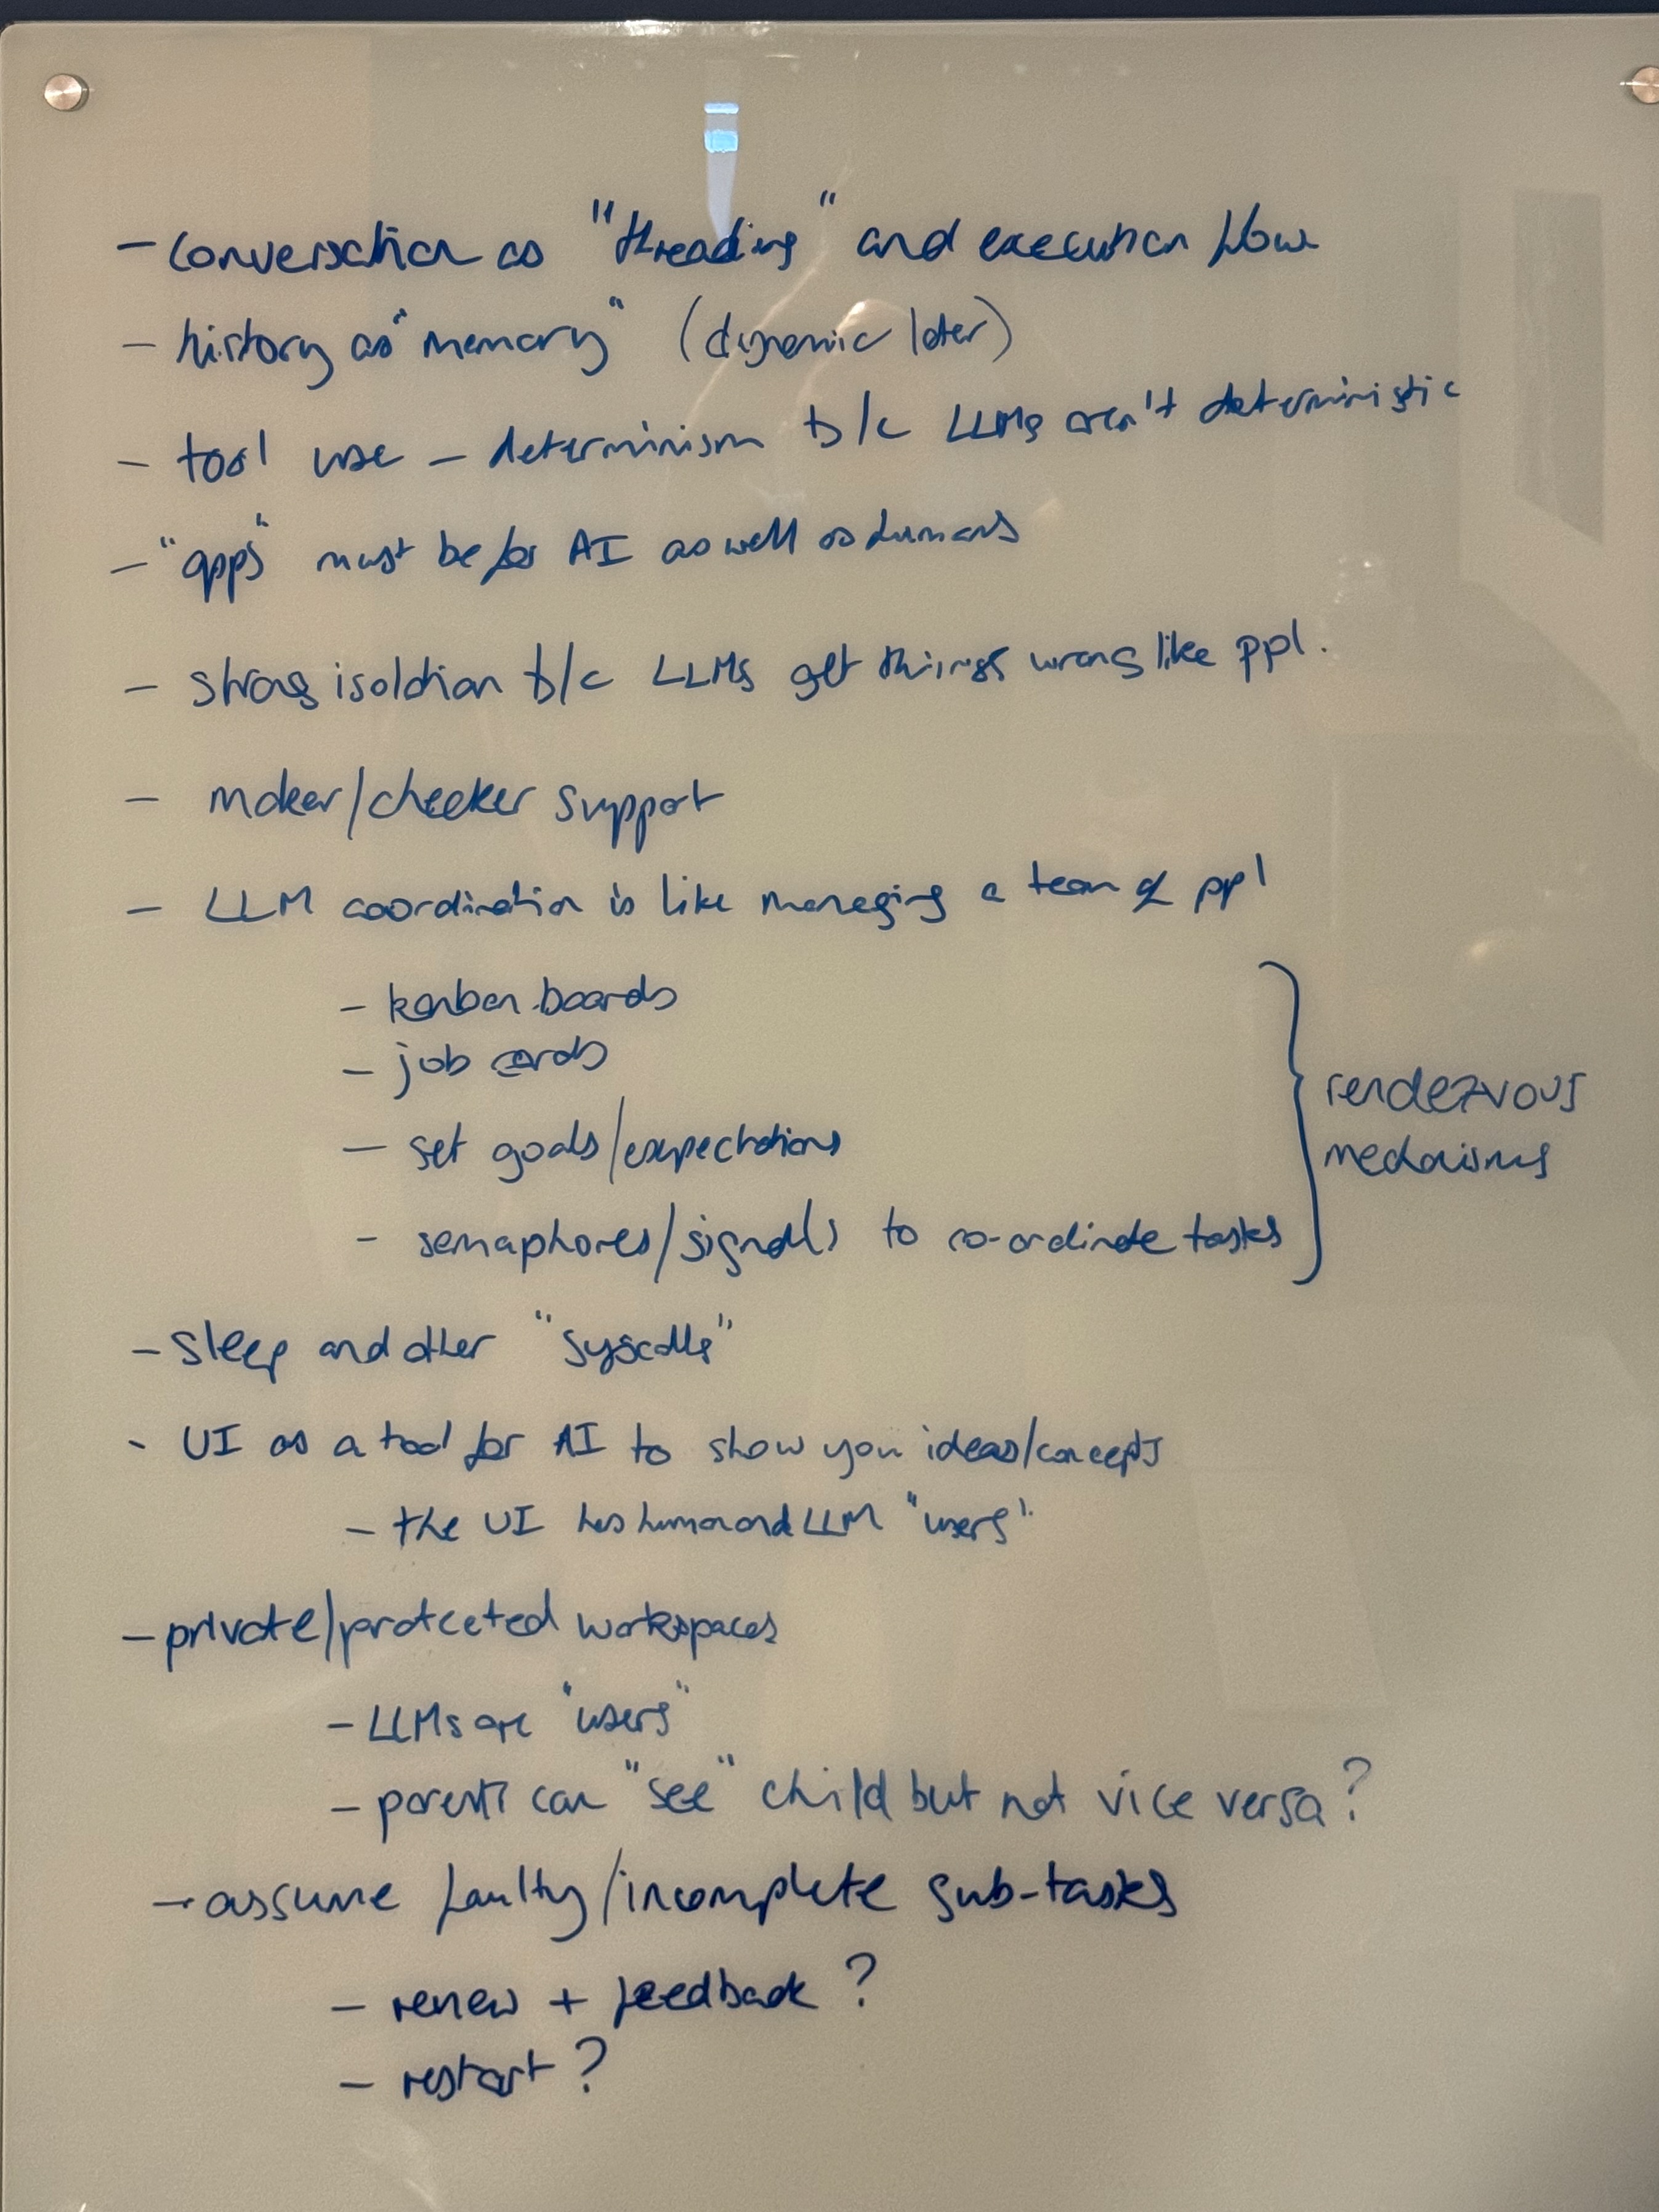 - conversation as "threading" and execution flow
- history as "memory" (dynamic later)
- tool use - determinism b/c LLMs aren't deterministic
- "apps" must be for AI as well as humans
- strong isolation b/c LLMs get things wrong like ppl.
- maker/checker support
- LLM coordination is like managing a team of ppl
- kanban boards
- job cards
- set goals/expectations
- semaphores/signals to co-ordinate tasks
rendezvous
mechanisms
- sleep and other "syscalls"
- UI as a tool for AI to show you ideas/concepts
- the UI has human and LLM "users"
- private/protected workspaces
- LLMs are "users"
- parent can "see" child but not vice versa?
- assume faulty/incomplete sub-tasks
- renew + feedback?
- restart?